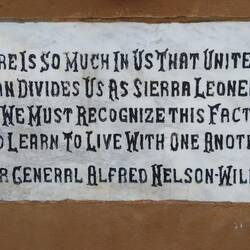 RE IS SO MUCH IN US THAT UNITE
AN DIVIDES US AS SIERRA LEONE
WE MUST RECOGNIZE THIS FACT
D LEARN TO LIVE WITH ONE ANOT
R GENERAL ALFRED NELSON-WIL